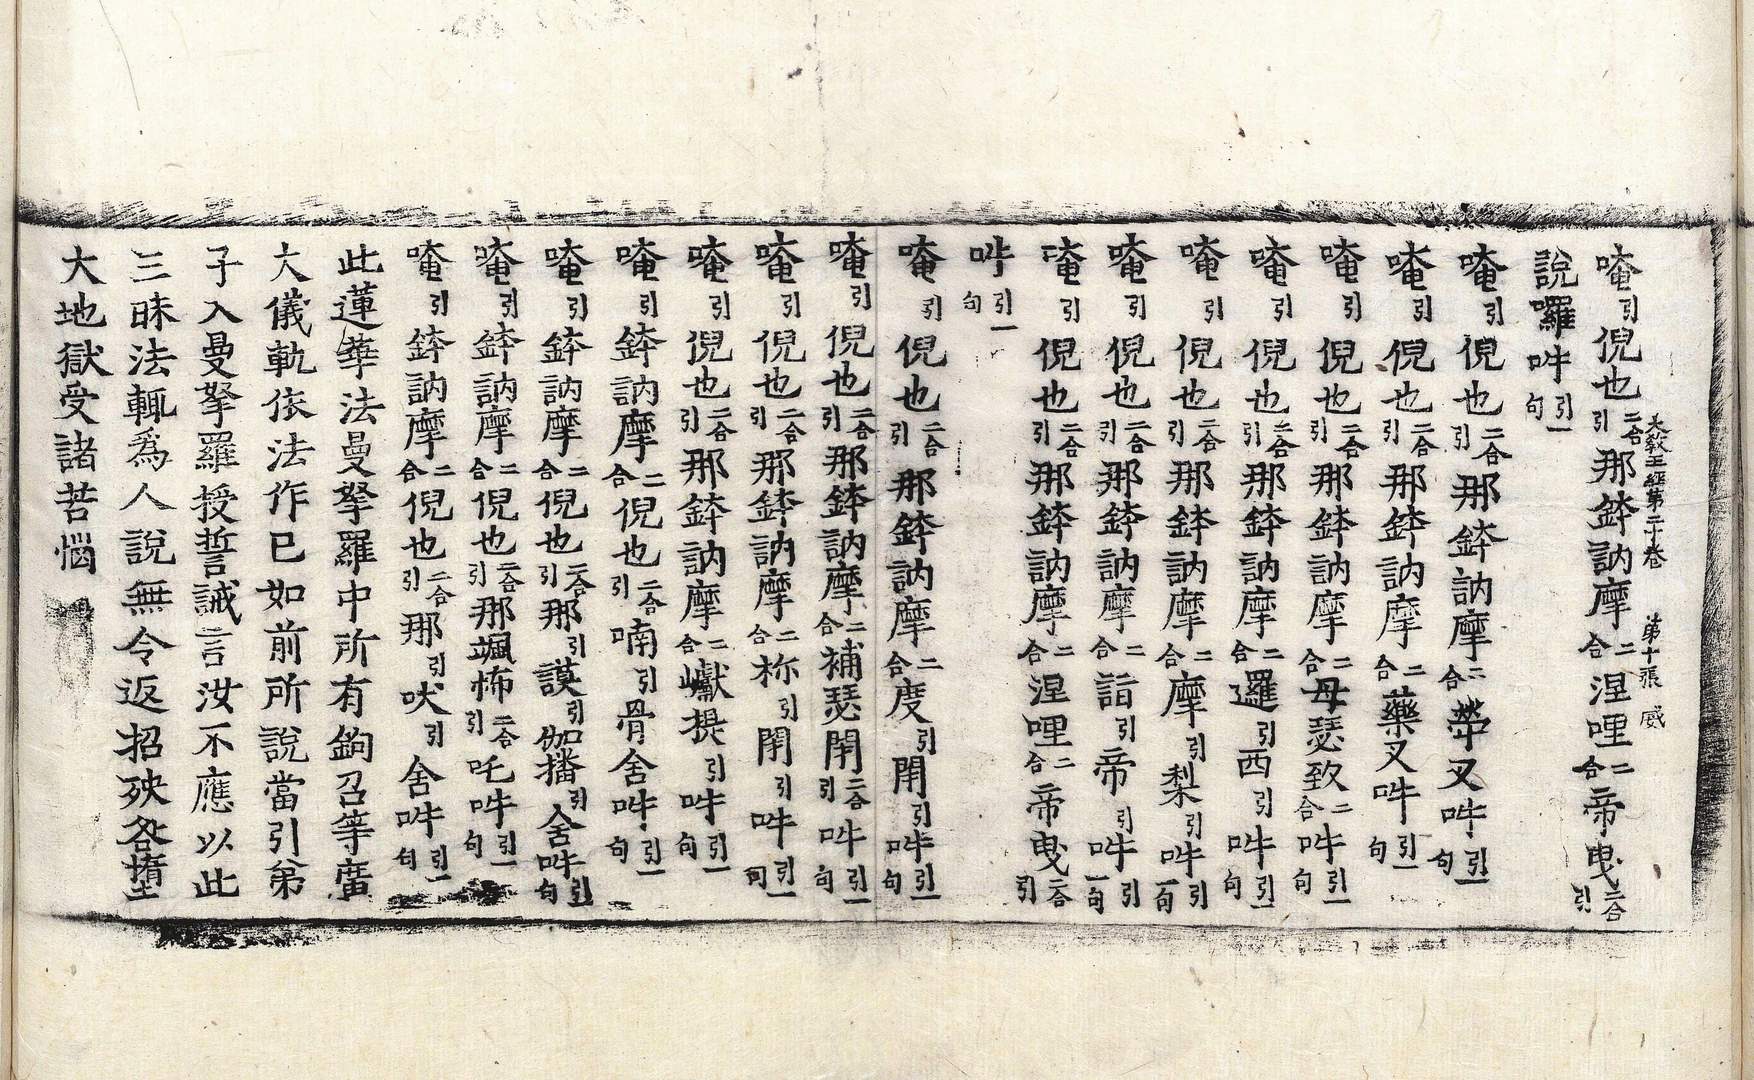 大教王經第二十卷 第十張 威
唵引倪也二合引那鉢訥摩二合涅哩二合帝曳二合引
說囉吽引一句
唵引倪也二合引那鉢訥摩二合帶叉吽引一句
唵引倪也二合引那鉢訥摩二合藥叉吽引一句
唵引倪也二合引那鉢訥摩二合母瑟致二合吽引一句
唵引倪也二合引那鉢訥摩二合邏引西引吽引一句
唵引倪也二合引那鉢訥摩二合摩引梨引吽引一句
唵引倪也二合引那鉢訥摩二合詣引帝引吽引一句
唵引倪也二合引那鉢訥摩二合涅哩二合帝曳二合引
吽引一句
唵引倪也二合引那鉢訥摩二合度引閉引吽引一句
唵引倪也二合引那鉢訥摩二合補瑟閉二合引吽引一句
唵引倪也二合引那鉢訥摩二合祢引閉引吽引一句
唵引倪也二合引那鉢訥摩二合巘提引吽引一句
唵引鉢訥摩二合倪也二合引喃引骨舍吽引一句
唵引鉢訥摩二合倪也二合引那引謨引伽播引舍吽引句
唵引鉢訥摩二合倪也二合引那颯怖二合引吒吽引一句
唵引鉢訥摩二合倪也二合引那引吠引舍吽引一句
此蓮華法曼拏羅中所有鉤召等廣
大儀軌依法作已如前所說當引弟
子入曼拏羅授誓誡言汝不應以此
三昧法輒爲人說無令返招殃咎墮
大地獄受諸苦惱